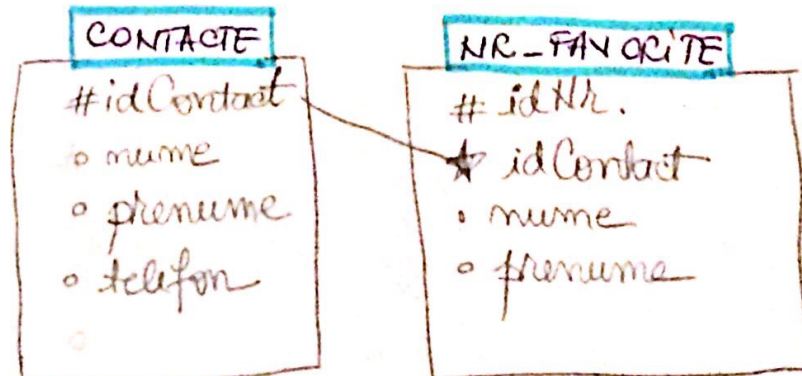 CONTACTE
#idContact
o nume
o prenume
o telefon
NR_FAVORITE
# idNr.
* idContact
• nume
o prenume